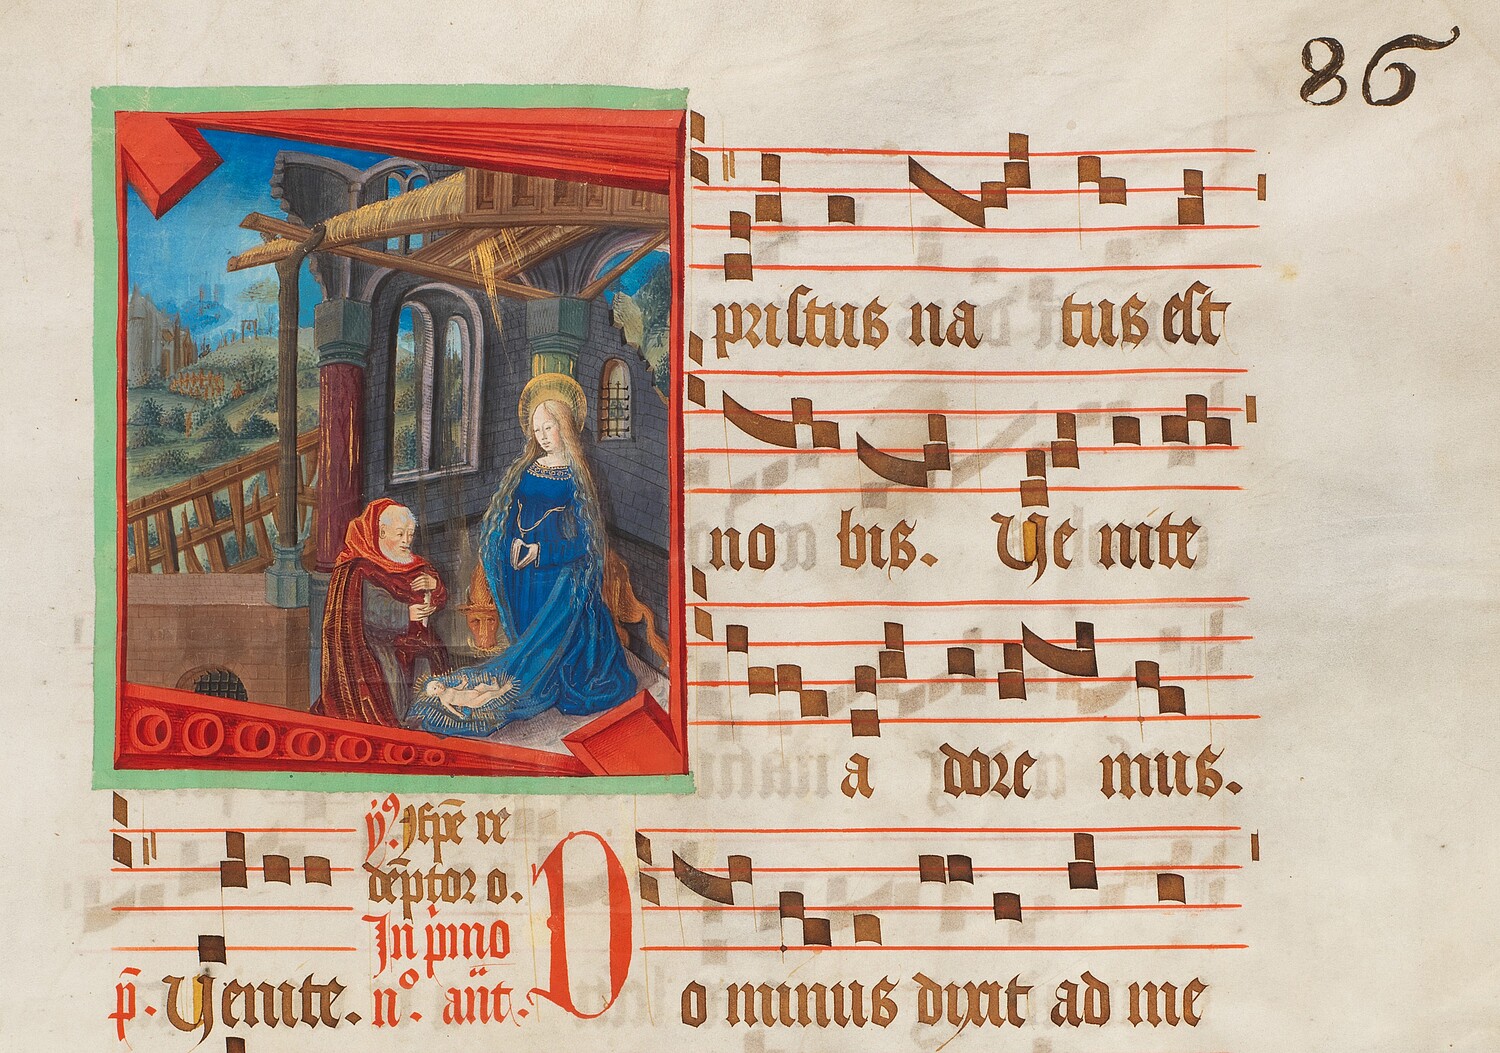 86
pristus na tus est
no bis. Ve nite
a dore mus.
ỹ. Xp̃e re
dẽptor o.
In p̃mo
p̃. Venite. n°. añt. D o minus dixit ad me